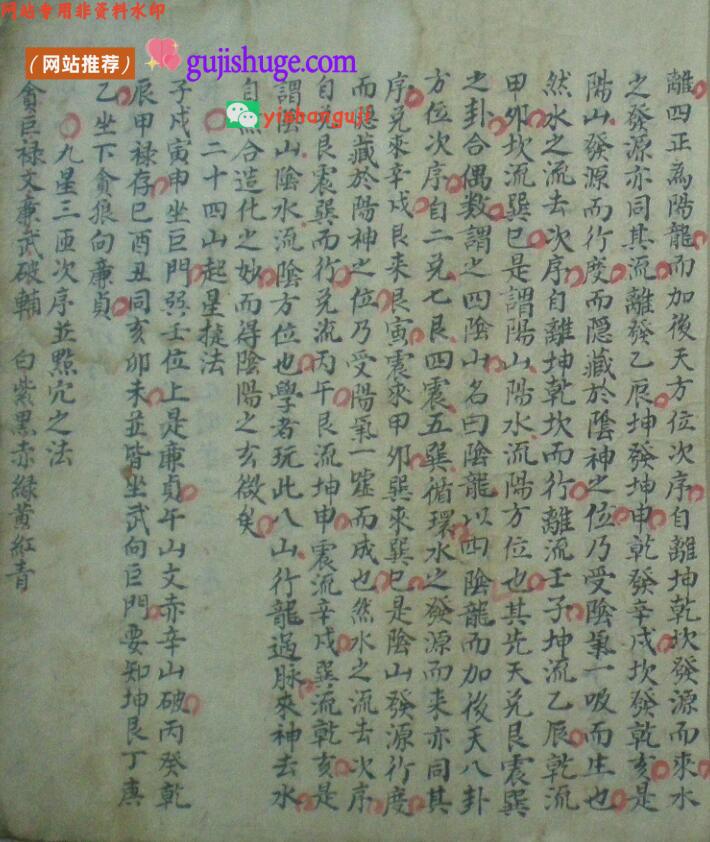 网站专用非资料水印
（网站推荐）
gujishuge.com
yishanguji
離四正為陽龍而加後天方位次序自離坤乾坎發源而來水
之發源亦同其流離發乙辰坤發坤申乾發辛戌坎發乾亥是
陽山發源而行度而隐藏於陰神之位乃受陰氣一吸而生也
然水之流去次序自離坤乾坎而行離流壬子坤流乙辰乾流
甲夘坎流巽巳是謂陽山陽水流陽方位也其先天兑艮震巽
之卦合偶数謂之四陰山名曰陰龍以四陰龍而加後天八卦
方位次序自二兑七艮四震五巽循環水之發源而来亦同其
序兑來辛戍艮来艮寅震來甲夘巽來巽巳是陰山發源行度
而隐藏於陽神之位乃受陽氣一嘘而成也然水之流去次序
自兑艮震巽而行兑流丙午艮流坤申震流辛戍巽流乾亥是
謂陰山陰水流陰方位也學者玩此八山行龍過脉來神去水
自然合造化之妙而得陰陽之玄微矣
二十四山起星捷法
子戍寅申坐巨門巽壬位上是廉貞午山文赤辛山破丙癸乾
辰甲禄存巳酉丑同亥卯未並皆坐武向巨門要知坤艮丁庚
乙坐下貪狼向廉貞
九星三匝次序並點穴之法
貪巨禄文廉武破輔 白紫黑赤緑黄紅青